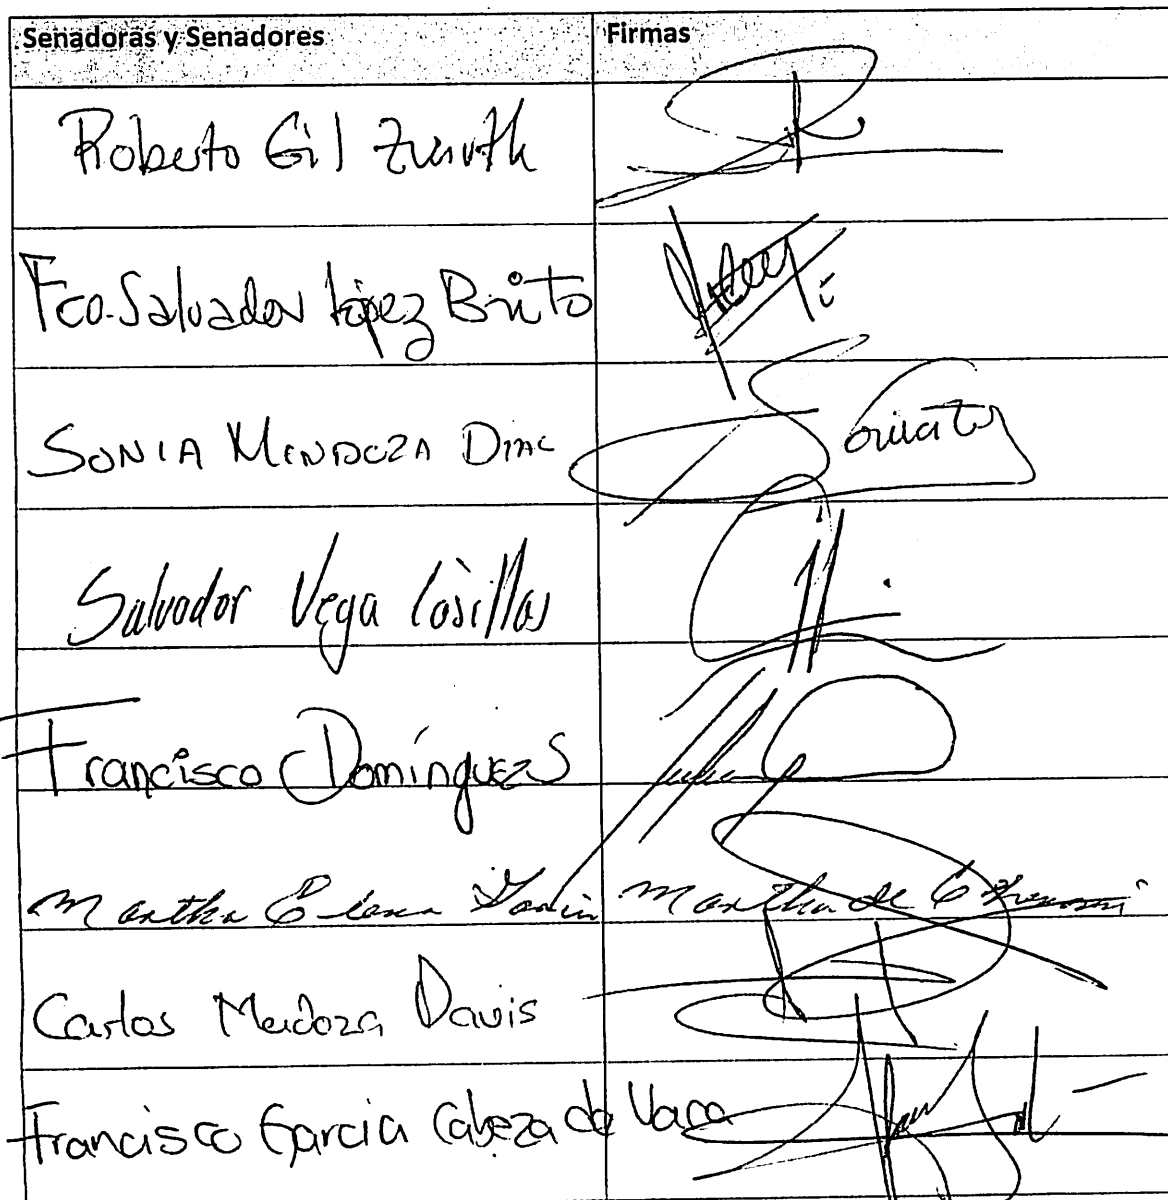 Senadoras y Senadores Firmas
Roberto Gil Zuarth
Fco. Salvador López Brito
SONIA MENDOZA DIAZ
Salvador Vega Casillas
Francisco Domínguez S
Martha Elena García Martha de
Carlos Mendoza Davis
Francisco García Cabeza de Vaca